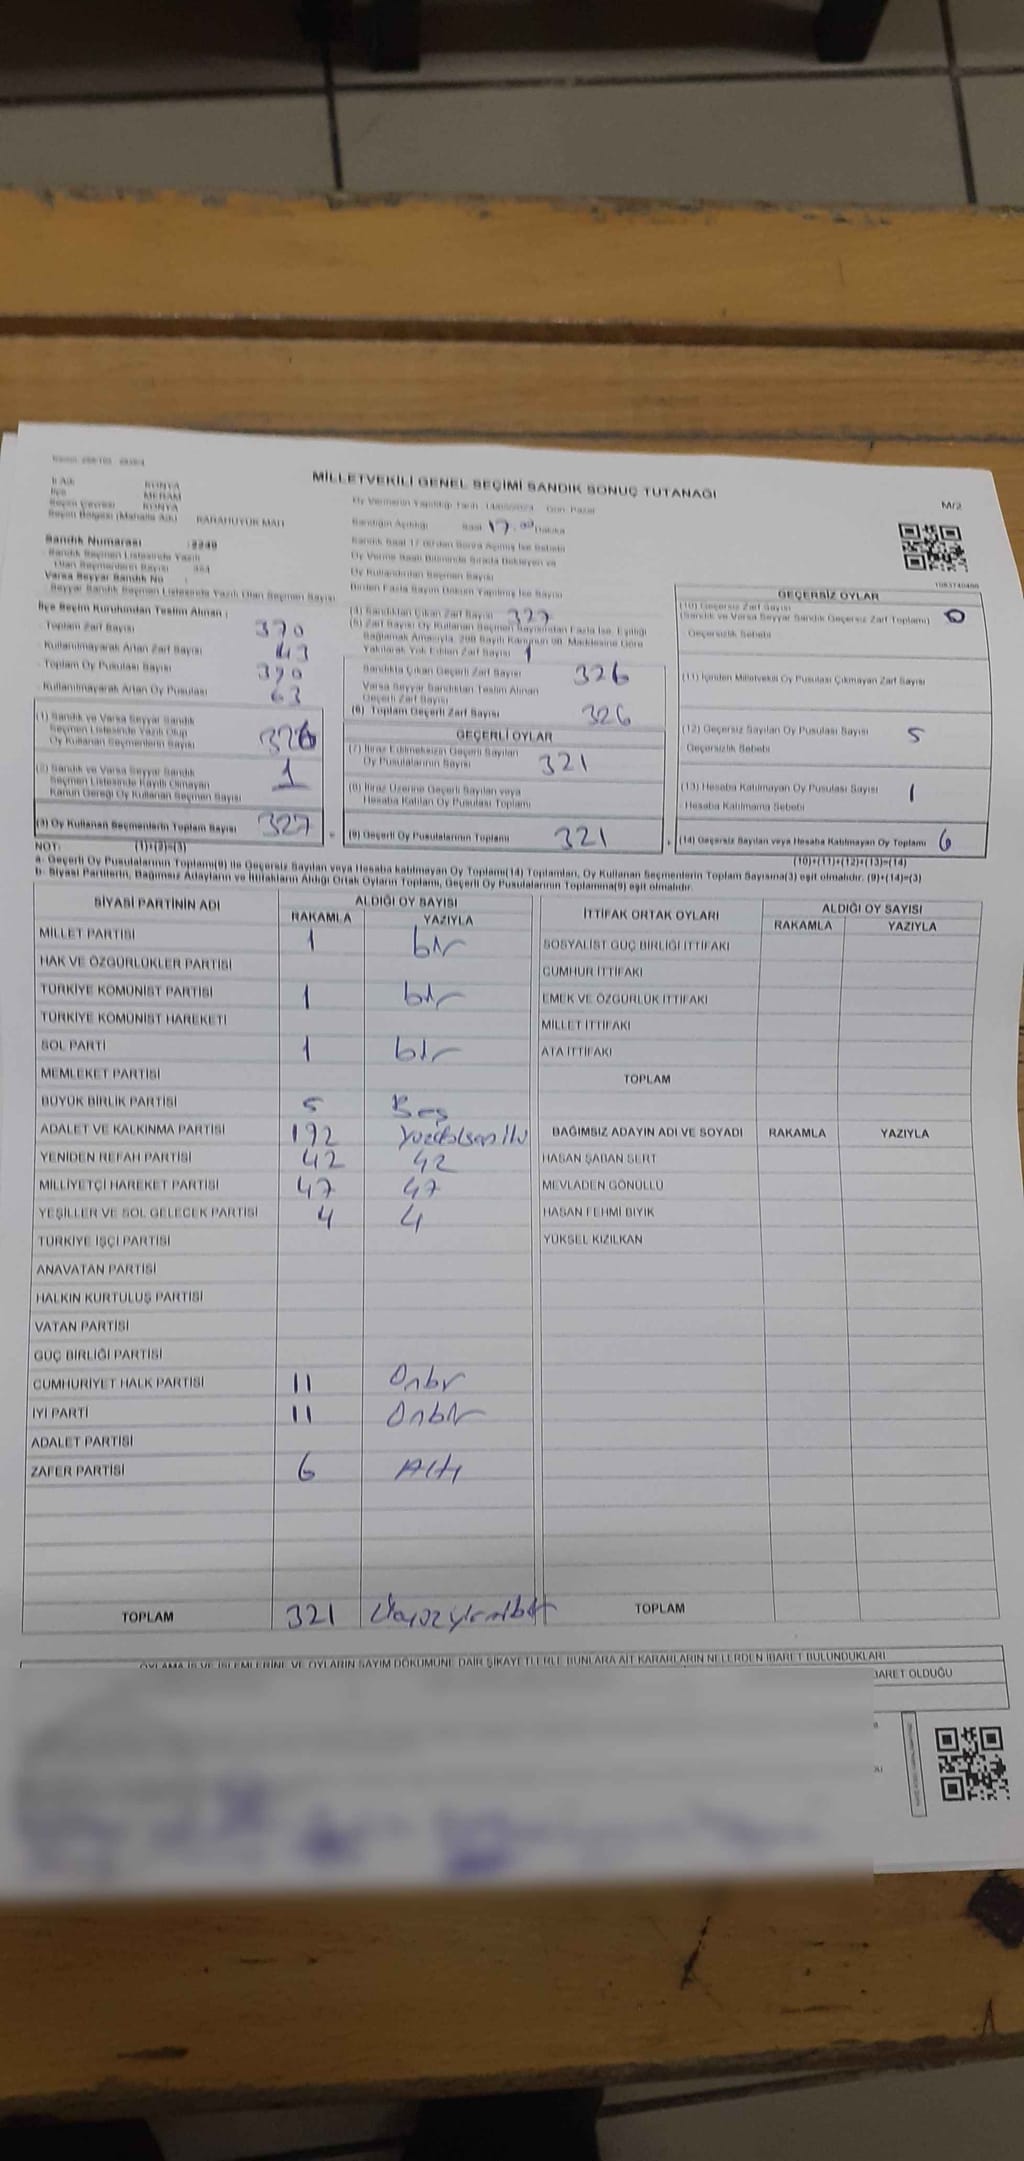 MİLLETVEKİLİ GENEL SEÇİMİ SANDIK SONUÇ TUTANAĞI
M/2
İl Adı KONYA
İlçe MERAM
Seçim Çevresi KONYA
Seçim Bölgesi (Mahalle Adı) KARAHÜYÜK MAH
Sandık Numarası
Sandık Seçmen Listesinde Yazılı
Olan Seçmenlerin Sayısı
Varsa Seyyar Sandık No :
Seyyar Sandık Seçmen Listesinde Yazılı Olan Seçmen Sayısı
Gün: Pazar
Sandığın Açıldığı Saat 17.00 Dakika
Oy Kullandırılan Seçmen Sayısı
Birden Fazla Sayım Döküm Yapılmış İse Sayısı
İlçe Seçim Kurulundan Teslim Alınan :
Toplam Zarf Sayısı 370
Kullanılmayarak Artan Zarf Sayısı 43
Toplam Oy Pusulası Sayısı 390
Kullanılmayarak Artan Oy Pusulası 63
(1) Sandık ve Varsa Seyyar Sandık
Seçmen Listesinde Yazılı Olup
Oy Kullanan Seçmenlerin Sayısı 326
(2) Sandık ve Varsa Seyyar Sandık
Seçmen Listesinde Kayıtlı Olmayan
Kanun Gereği Oy Kullanan Seçmen Sayısı 1
(3) Oy Kullanan Seçmenlerin Toplam Sayısı 327
(4) Sandıktan Çıkan Zarf Sayısı 327
(5) Zarf Sayısı Oy Kullanan Seçmen Sayısından Fazla İse, Eşitliği
Sağlamak Amacıyla, 298 Sayılı Kanunun 98. Maddesine Göre
Yakılarak Yok Edilen Zarf Sayısı 1
Sandıkta Çıkan Geçerli Zarf Sayısı 326
Varsa Seyyar Sandıktan Teslim Alınan
Geçerli Zarf Sayısı
(6) Toplam Geçerli Zarf Sayısı 326
GEÇERLİ OYLAR
(7) İtiraz Edilmeksizin Geçerli Sayılan
Oy Pusulalarının Sayısı 321
(8) İtiraz Üzerine Geçerli Sayılan veya
Hesaba Katılan Oy Pusulası Toplamı
(9) Geçerli Oy Pusulalarının Toplamı 321
GEÇERSİZ OYLAR
(10) Geçersiz Zarf Sayısı
(Sandık ve Varsa Seyyar Sandık Geçersiz Zarf Toplamı) 0
Geçersizlik Sebebi
(11) İçinden Milletvekili Oy Pusulası Çıkmayan Zarf Sayısı
(12) Geçersiz Sayılan Oy Pusulası Sayısı 5
Geçersizlik Sebebi
(13) Hesaba Katılmayan Oy Pusulası Sayısı 1
Hesaba Katılmama Sebebi
(14) Geçersiz Sayılan veya Hesaba Katılmayan Oy Toplamı 6
NOT: (1)+(2)=(3)
(10)+(11)+(12)+(13)=(14)
a- Geçerli Oy Pusulalarının Toplamı(9) ile Geçersiz Sayılan veya Hesaba katılmayan Oy Toplamı(14) Toplamları, Oy Kullanan Seçmenlerin Toplam Sayısına(3) eşit olmalıdır. (9)+(14)=(3)
b- Siyasi Partilerin, Bağımsız Adayların ve İttifakların Aldığı Ortak Oyların Toplamı, Geçerli Oy Pusulalarının Toplamına(9) eşit olmalıdır.
SİYASİ PARTİNİN ADI ALDIĞI OY SAYISI
RAKAMLA YAZIYLA
MİLLET PARTİSİ 1 bir
HAK VE ÖZGÜRLÜKLER PARTİSİ
TÜRKİYE KOMÜNİST PARTİSİ 1 bir
TÜRKİYE KOMÜNİST HAREKETİ
SOL PARTİ 1 bir
MEMLEKET PARTİSİ
BÜYÜK BİRLİK PARTİSİ 5 Beş
ADALET VE KALKINMA PARTİSİ 192
YENİDEN REFAH PARTİSİ 42 42
MİLLİYETÇİ HAREKET PARTİSİ 47 47
YEŞİLLER VE SOL GELECEK PARTİSİ 4 4
TÜRKİYE İŞÇİ PARTİSİ
ANAVATAN PARTİSİ
HALKIN KURTULUŞ PARTİSİ
VATAN PARTİSİ
GÜÇ BİRLİĞİ PARTİSİ
CUMHURİYET HALK PARTİSİ 11 Onbir
İYİ PARTİ 11 Onbir
ADALET PARTİSİ
ZAFER PARTİSİ 6 Altı
TOPLAM 321
İTTİFAK ORTAK OYLARI ALDIĞI OY SAYISI
RAKAMLA YAZIYLA
SOSYALİST GÜÇ BİRLİĞİ İTTİFAKI
CUMHUR İTTİFAKI
EMEK VE ÖZGÜRLÜK İTTİFAKI
MİLLET İTTİFAKI
ATA İTTİFAKI
TOPLAM
BAĞIMSIZ ADAYIN ADI VE SOYADI RAKAMLA YAZIYLA
HASAN ŞABAN SERT
MEVLADEN GÖNÜLLÜ
HASAN FEHMİ BIYIK
YÜKSEL KIZILKAN
TOPLAM
OYLAMA İŞ VE İŞLEMLERİNE VE OYLARIN SAYIM DÖKÜMÜNE DAİR ŞİKAYETLERLE BUNLARA AİT KARARLARIN NELERDEN İBARET BULUNDUKLARI
İBARET OLDUĞU